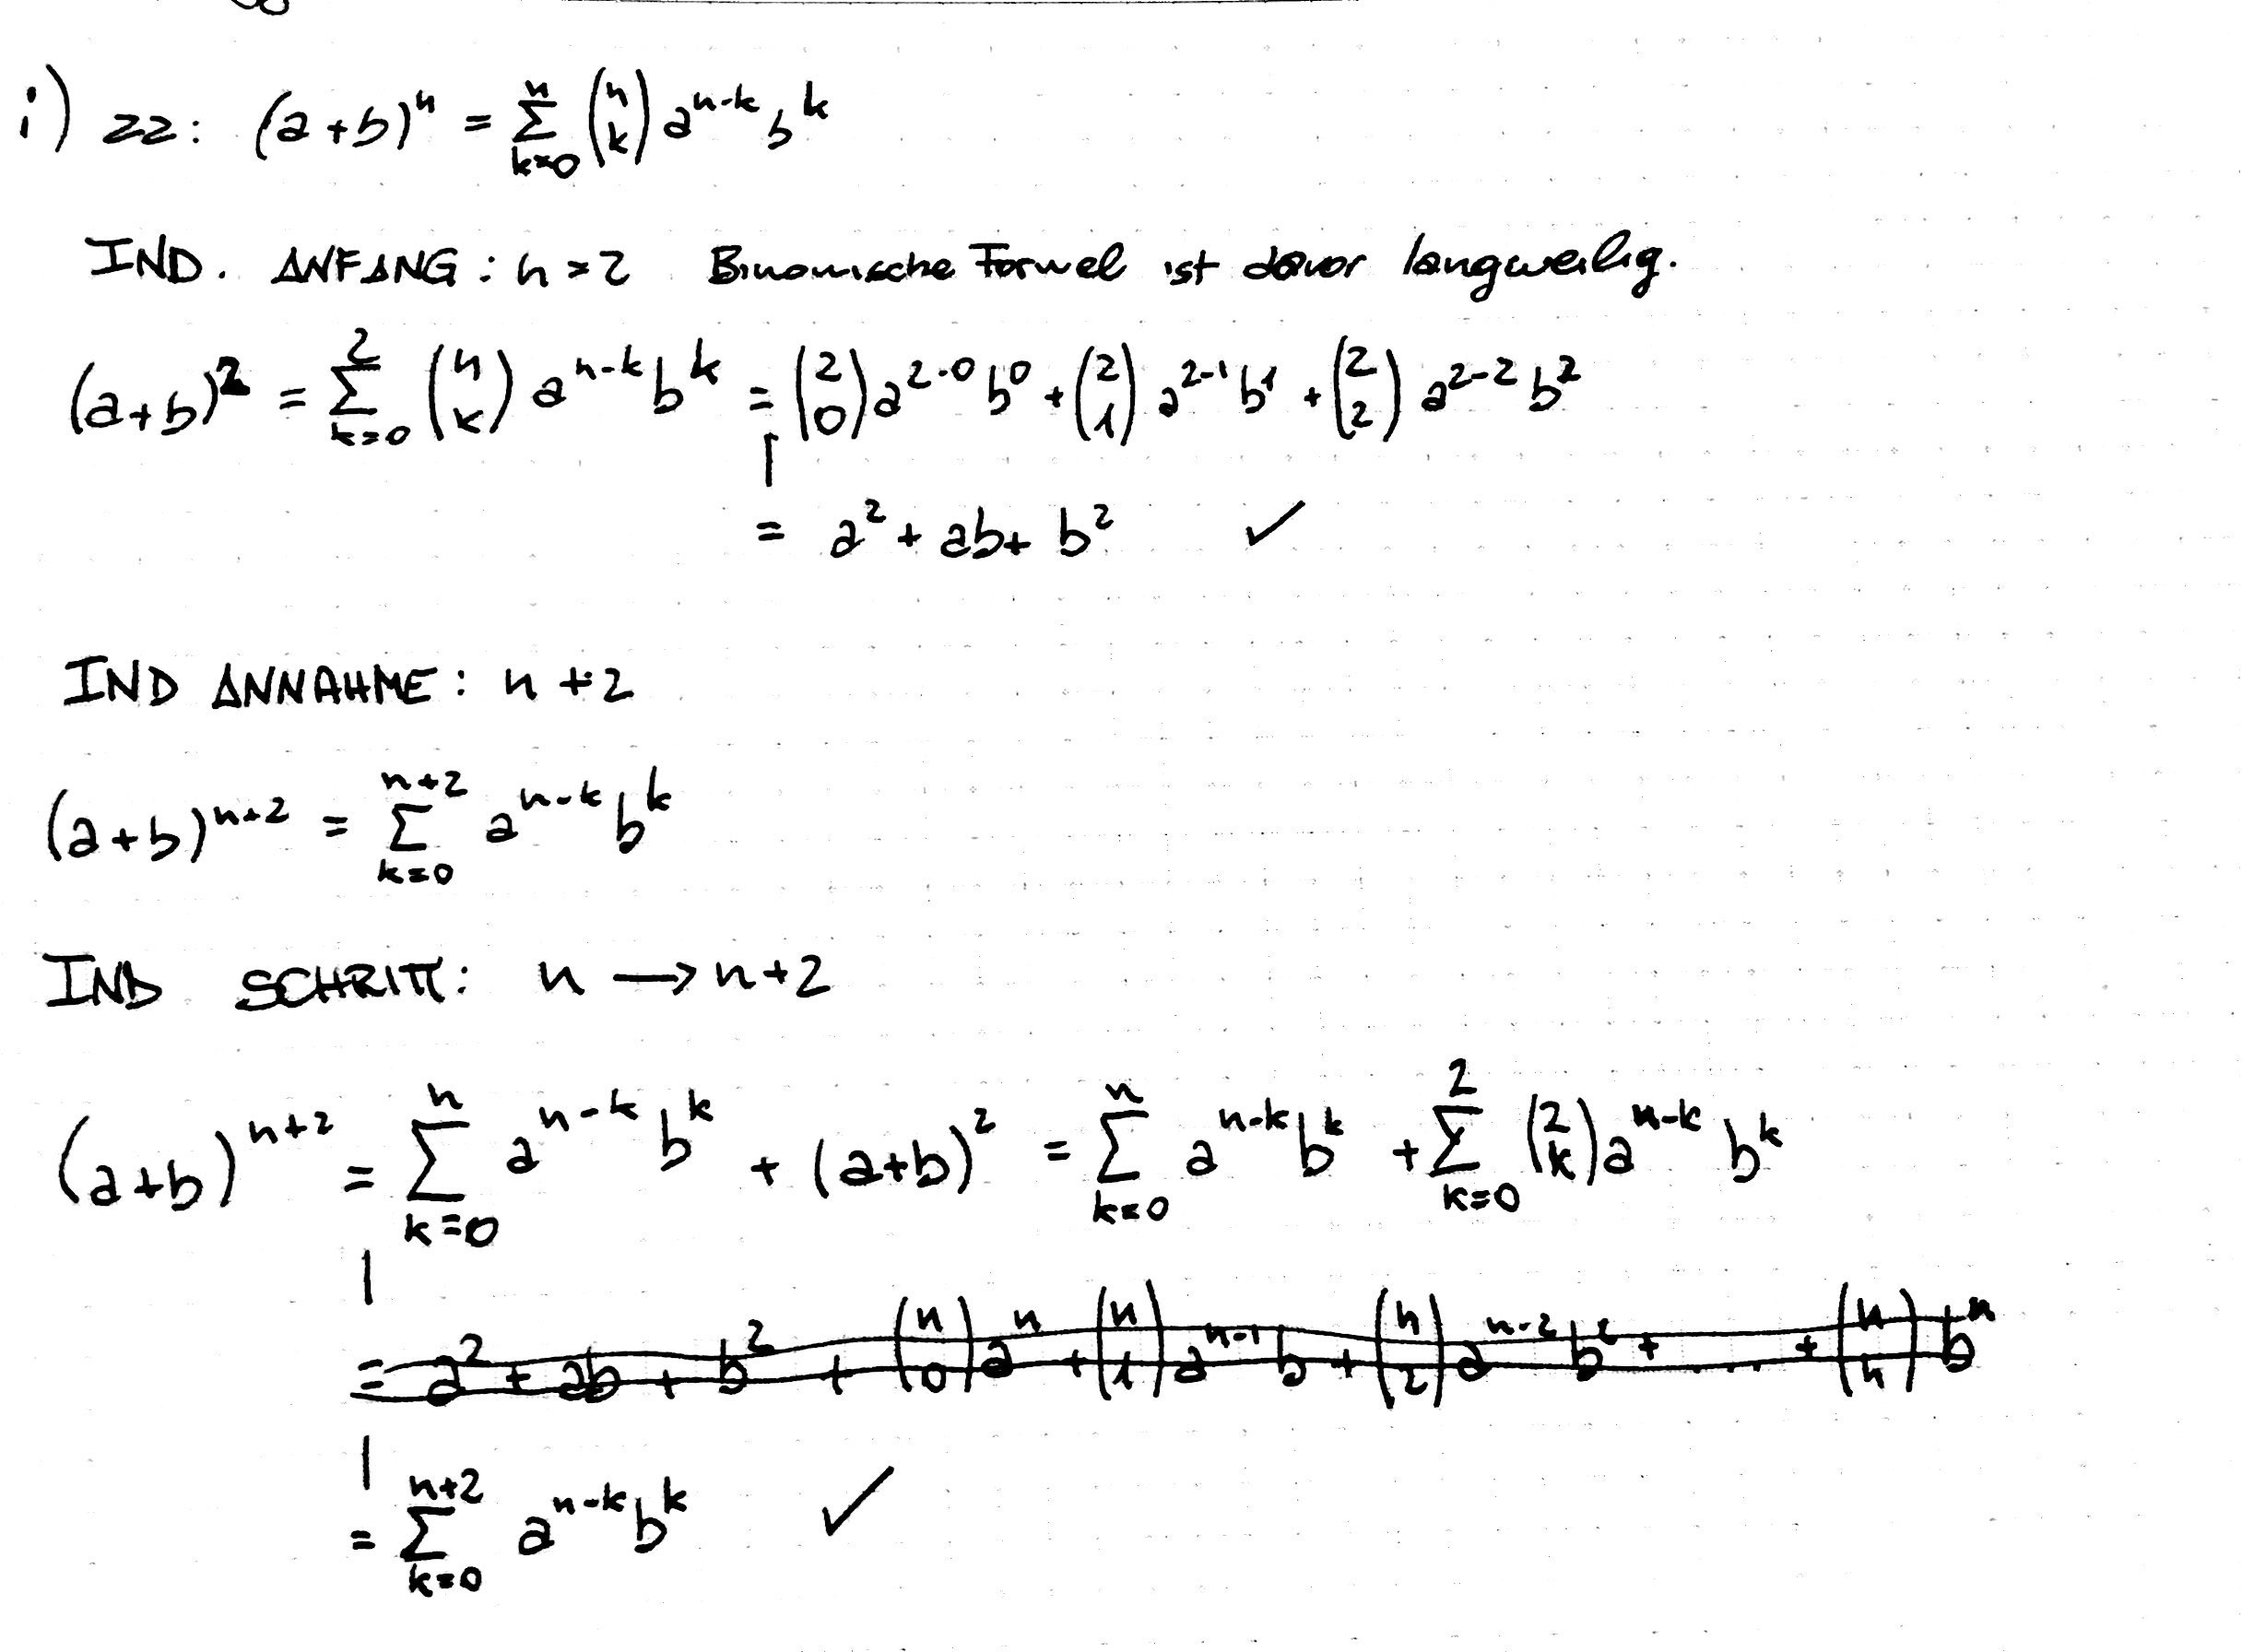 i) zz: (a+b)^n = ∑_{k=0}^{n} (n k) a^{n-k} b^k
IND. ANFANG: n=2 Binomische Formel ist davor langweilig.
(a+b)^2 = ∑_{k=0}^{2} (n k) a^{n-k} b^k = (2 0) a^{2-0} b^0 + (2 1) a^{2-1} b^1 + (2 2) a^{2-2} b^2
= a^2 + ab + b^2 ✓
IND ANNAHME: n+2
(a+b)^{n+2} = ∑_{k=0}^{n+2} a^{n-k} b^k
IND SCHRITT: n → n+2
(a+b)^{n+2} = ∑_{k=0}^{n} a^{n-k} b^k + (a+b)^2 = ∑_{k=0}^{n} a^{n-k} b^k + ∑_{k=0}^{2} (2 k) a^{n-k} b^k
= a^2 + ab + b^2 + (n 0) a^n + (n 1) a^{n-1} b + (n 2) a^{n-2} b^2 + .... + (n n) b^n
= ∑_{k=0}^{n+2} a^{n-k} b^k ✓